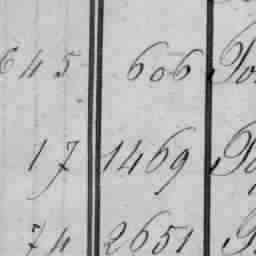 645 606 To
17 1469 To
74 2651